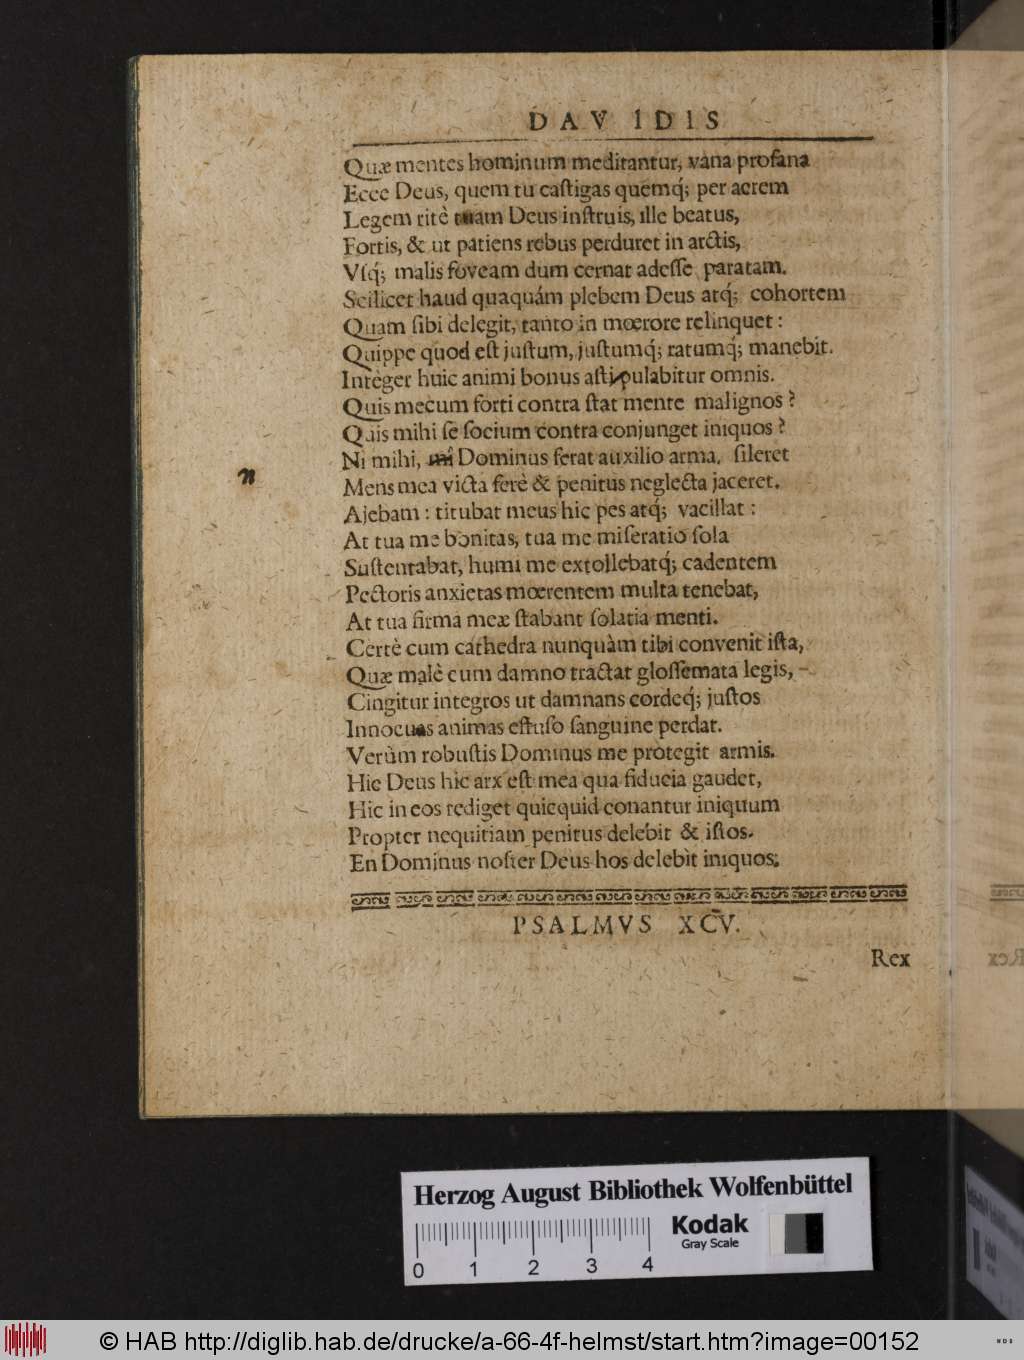 DAVIDIS
Quæ mentes hominum meditantur, vana profana
Ecce Deus, quem tu caſtigas quemq́; per aerem
Legem ritè tuam Deus inſtruis, ille beatus,
Fortis, & ut patiens rebus perduret in arctis,
Vſq́; malis foveam dum cernat adeſſe paratam.
Scilicet haud quaquám plebem Deus atq́; cohortem
Quam ſibi delegit, tanto in mœrore relinquet:
Quippe quod eſt juſtum, juſtumq́; ratumq́; manebit.
Intèger huic animi bonus aſtipulabitur omnis.
Quis mecum forti contra ſtat mente malignos?
Quis mihi ſe ſocium contra conjunget iniquos?
Ni mihi, mi Dominus ferat auxilio arma, ſileret
n
Mens mea victa ferè & penitus neglecta jaceret.
Ajebam: titubat meus hic pes atq́; vacillat:
At tua me bonitas, tua me miſeratio ſola
Suſtentabat, humi me extollebatq́; cadentem
Pectoris anxietas mœrentem multa tenebat,
At tua firma meæ ſtabant ſolatia menti.
Certè cum cathedra nunquàm tibi convenit iſta,
Quæ malè cum damno tractat gloſſemata legis,
Cingitur integros ut damnans cordeq́; juſtos
Innocuas animas effuſo ſanguine perdat.
Verùm robuſtis Dominus me protegit armis.
Hic Deus hic arx eſt mea qua fiducia gaudet,
Hic in eos rediget quicquid conantur iniquum
Propter nequitiam penitus delebit & iſtos.
En Dominus noſter Deus hos delebit iniquos.
PSALMVS XCV.
Rex
Herzog August Bibliothek Wolfenbüttel
Kodak
Gray Scale
0 1 2 3 4
© HAB http://diglib.hab.de/drucke/a-66-4f-helmst/start.htm?image=00152